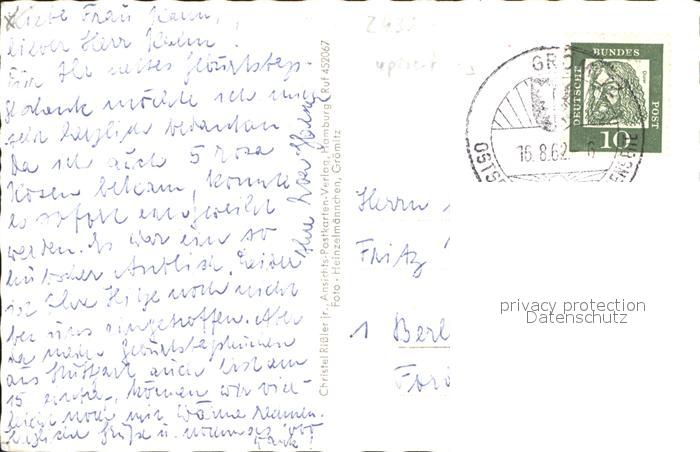 Liebe Frau Kahn,
lieber Herr Kahn.
Für Ihr nettes Geburtstags-
geschenk möchte ich mich
sehr herzlich bedanken
Da ich auch 5 rosa
Rosen bekam, konnte
es sofort eingeweiht
werden. Es war ein so
hübscher Anblick. Leider
ist Ihre Hitze noch nicht
bei uns eingetroffen. Aber
da mein
aus Stuttgart auch erst am
15 können wir viel-
leicht noch mit Wärme rechnen.
Herzliche Grüße u. nochmals
Dank!
Ihre
Christel Rißler jr., Ansichts-Postkarten-Verlag, Hamburg · Ruf 452067
Foto: Heinzelmännchen, Grömitz
GRÖ
16.8.62
OSTSE
DEUTSCHE
BUNDES
POST
10
Herrn
Fritz
1 Berl
privacy protection
Datenschutz